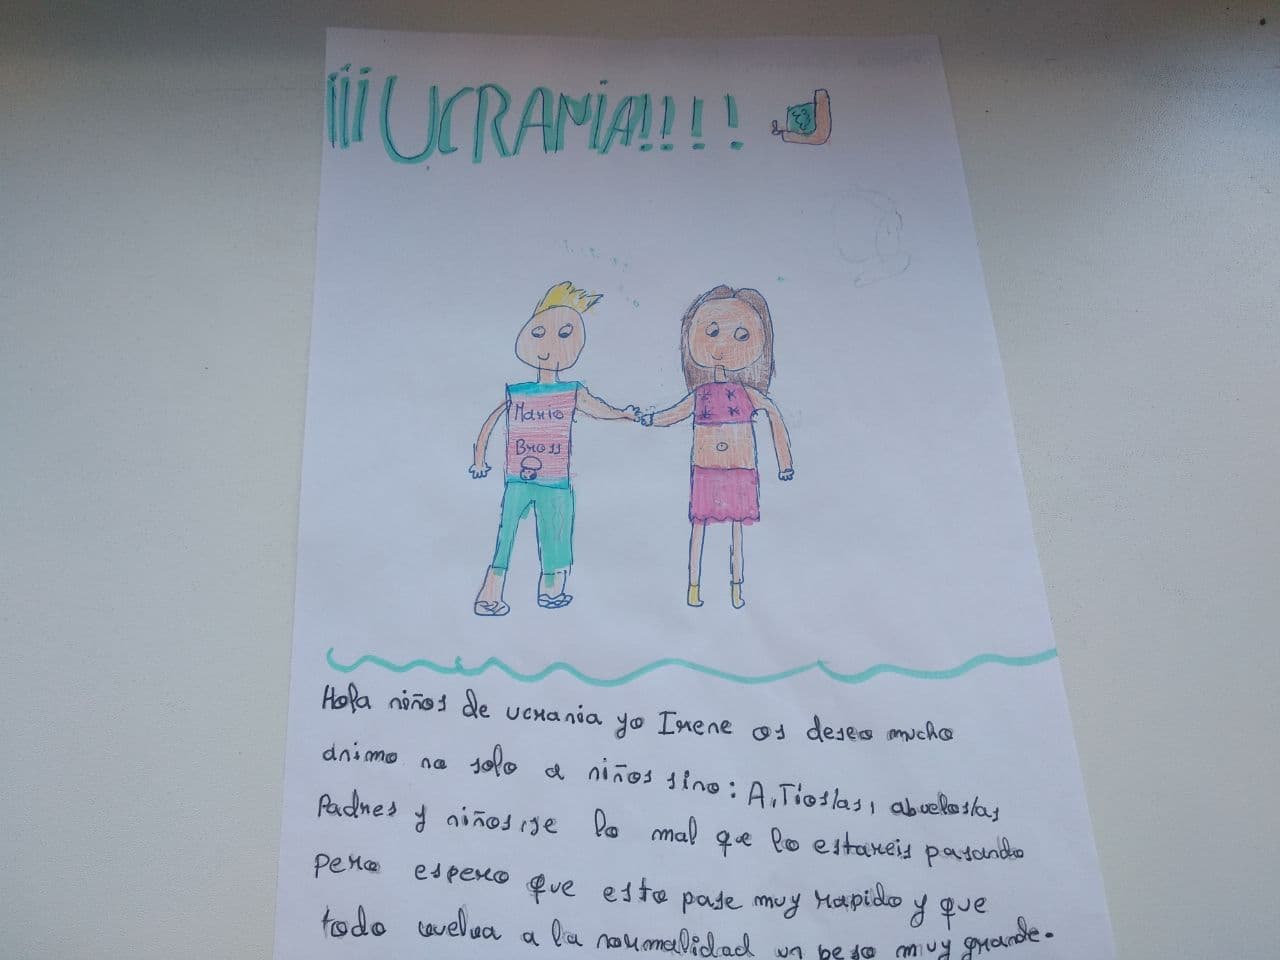 ¡¡¡UCRANiA!!!!
Mario
Bross
Hola niños de ucrania yo Irene os deseo mucho
ánimo no solo a niños sino: A,Tios/as, abuelos/as
Padres y niños,se lo mal que lo estareis pasando
pero espero que esto pase muy rapido y que
todo vuelva a la normalidad un beso muy grande.